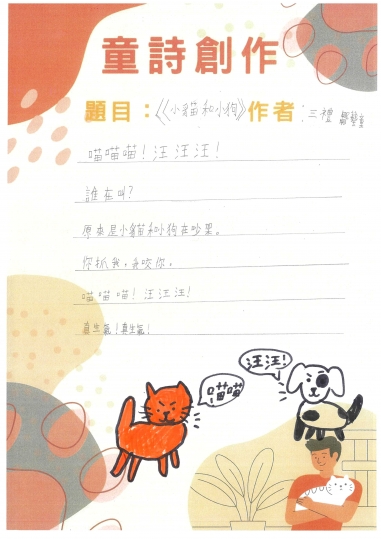 童詩創作
題目：《小貓和小狗》作者：三禮
喵喵喵！汪汪汪！
誰在叫？
原來是小貓和小狗在吵架。
你抓我，我咬你。
喵喵喵！汪汪汪！
真生氣！真生氣！
喵喵
汪汪！